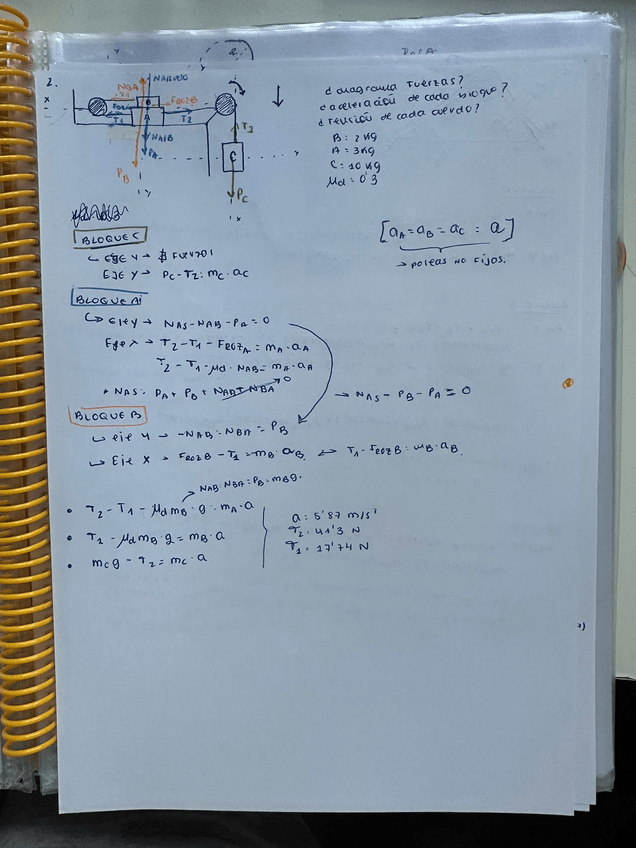 2.
NBA
NAB
FROZB
T1
T2
NAB
PA
PB
T2
C
PC
x
y
¿diagrama fuerzas?
¿aceleración de cada bloque?
¿tensión de cada cuerda?
B = 2 kg
A = 3 kg
C = 10 kg
μd = 0'3
[aA = aB = aC = a]
→ poleas no fijas.
BLOQUE C
EJE Y → PC - T2 = mC · aC
BLOQUE A
↳ eje y → NAS - NAB - PA = 0
Eje x → T2 - T1 - FROZA = mA · aA
T2 - T1 - μd · NAB = mA · aA
* NAS = PA + PB + NAB + NBA 0
→ NAS - PB - PA = 0
BLOQUE B
↳ eje y → -NAB = NBA = PB
↳ Eje x → FROZB - T1 = mB · aB ↔ T1 - FROZB = mB · aB.
→ NAB = NBA = PB = mB g.
• T2 - T1 - μd mB · g = mA · a
• T1 - μd mB g = mB · a
• mC g - T2 = mC · a
a = 5'87 m/s²
T2 = 41'3 N
T1 = 17'74 N